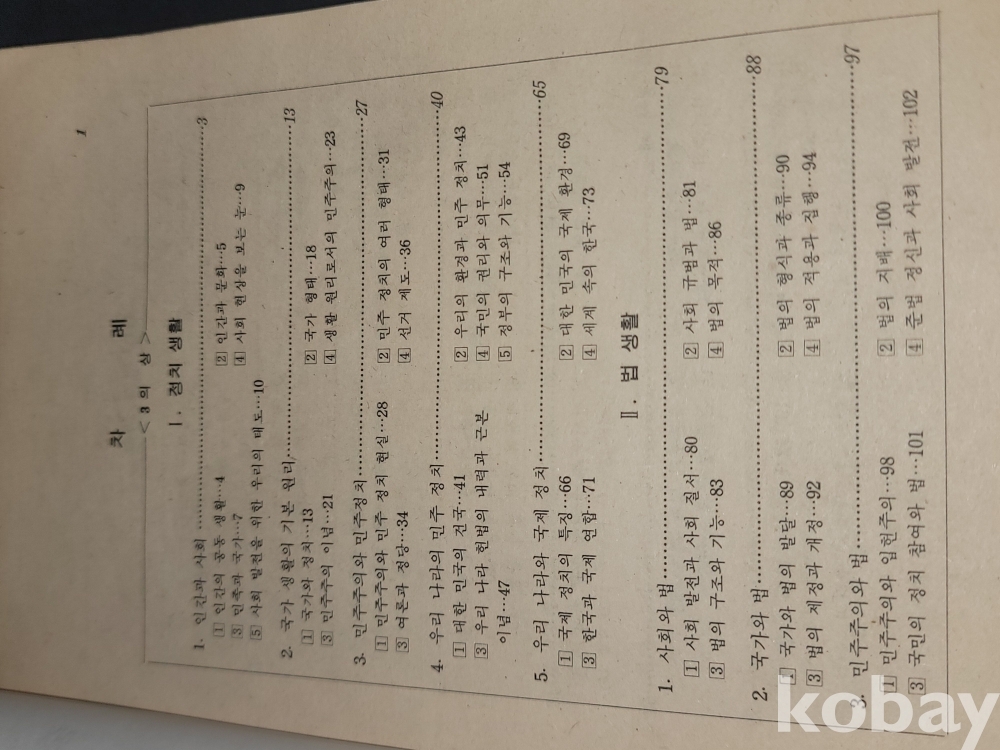 1
차 례
< 3 의 상 >
Ⅰ. 정치 생활
1. 인간과 사회……………………………………………3
1 인간의 공동 생활…4 2 인간과 문화…5
3 민족과 국가…7 4 사회 현상을 보는 눈…9
5 사회 발전을 위한 우리의 태도…10
2. 국가 생활의 기본 원리……………………………………13
1 국가와 정치…13 2 국가 형태…18
3 민주주의 이념…21 4 생활 원리로서의 민주주의…23
3. 민주주의와 민주정치……………………………………27
1 민주주의와 민주 정치 현실…28 2 민주 정치의 여러 형태…31
3 여론과 정당…34 4 선거 제도…36
4. 우리 나라의 민주 정치……………………………………40
1 대한 민국의 건국…41 2 우리의 환경과 민주 정치…43
3 우리 나라 헌법의 내력과 근본 4 국민의 권리와 의무…51
이념…47 5 정부의 구조와 기능…54
5. 우리 나라와 국제 정치……………………………………65
1 국제 정치의 특징…66 2 대한 민국의 국제 환경…69
3 한국과 국제 연합…71 4 세계 속의 한국…73
Ⅱ. 법 생활
1. 사회와 법……………………………………………79
1 사회 발전과 사회 질서…80 2 사회 규범과 법…81
3 법의 구조와 기능…83 4 법의 목적…86
2. 국가와 법……………………………………………88
1 국가와 법의 발달…89 2 법의 형식과 종류…90
3 법의 제정과 개정…92 4 법의 적용과 집행…94
3. 민주주의와 법……………………………………………97
1 민주주의와 입헌주의…98 2 법의 지배…100
3 국민의 정치 참여와 법…101 4 준법 정신과 사회 발전…102
kobay